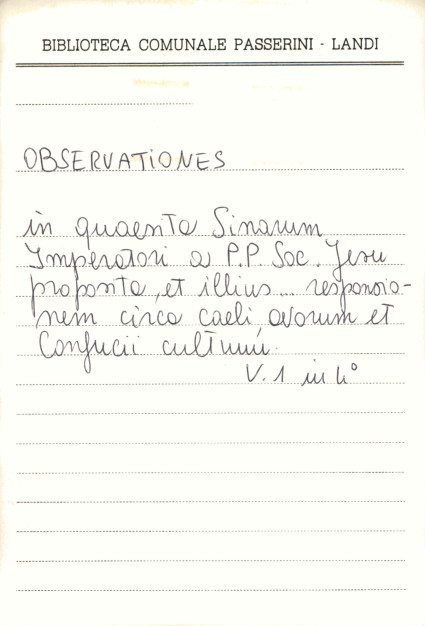 BIBLIOTECA COMUNALE PASSERINI - LANDI
OBSERVATIONES
in quaesita Sinarum
Imperatori a P.P. Soc. Jesu
proposita, et illius... responsio-
nem circa caeli, avorum et
Confucii cultum.
V. 1 in 4°